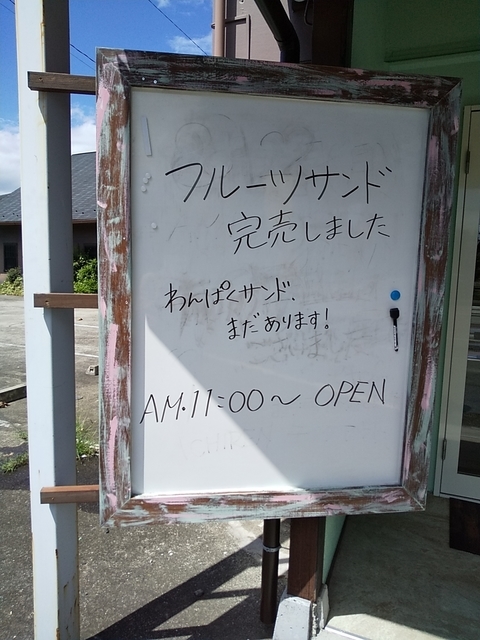 フルーツサンド
完売しました
わんぱくサンド、
まだあります!
AM.11:00〜 OPEN